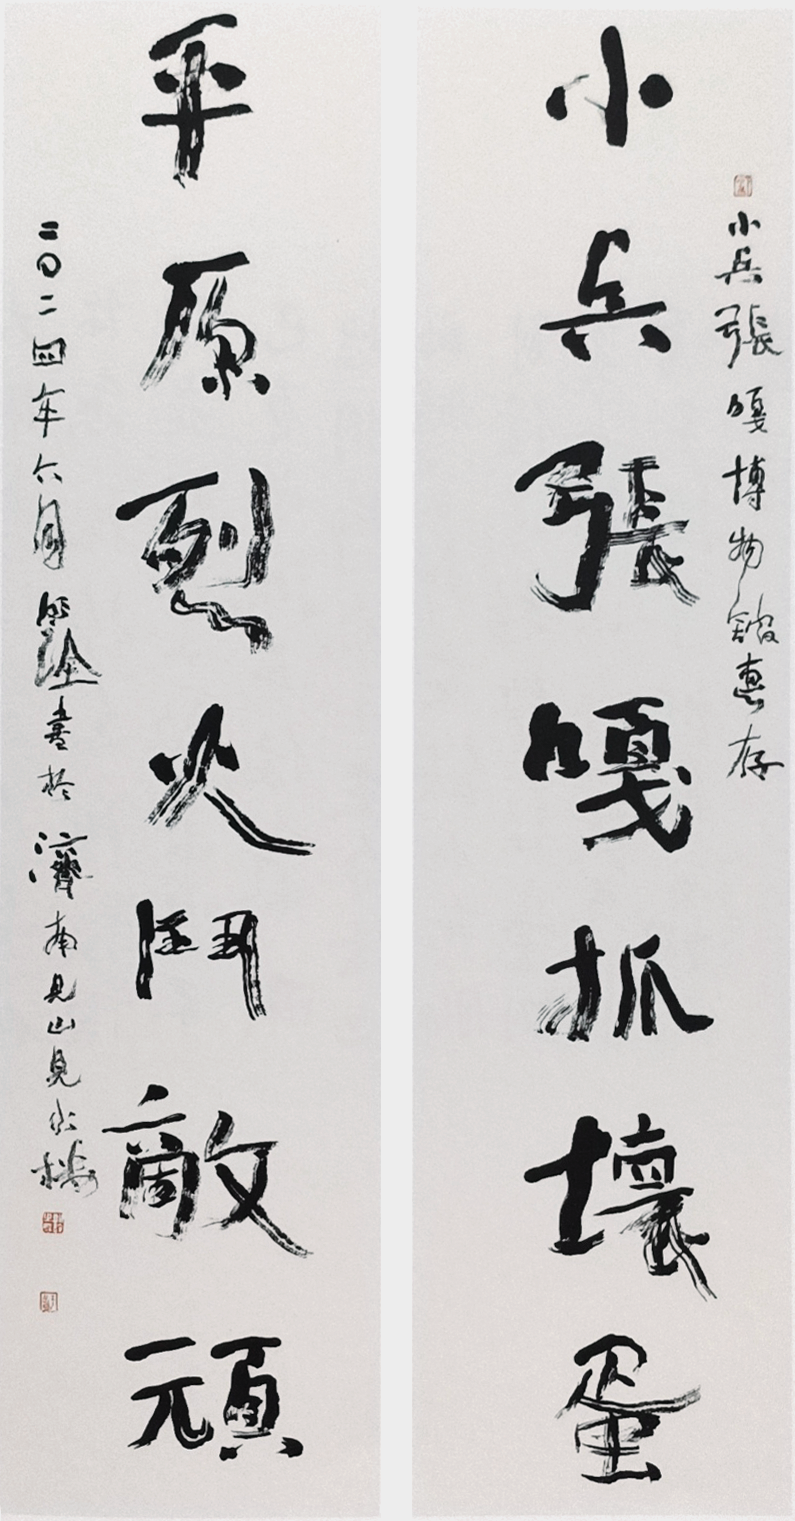 小兵張嘎博物館惠存
小兵張嘎抓壞蛋
平原烈火鬥敵頑
二〇二四年六月 書於濟南見山見水樓